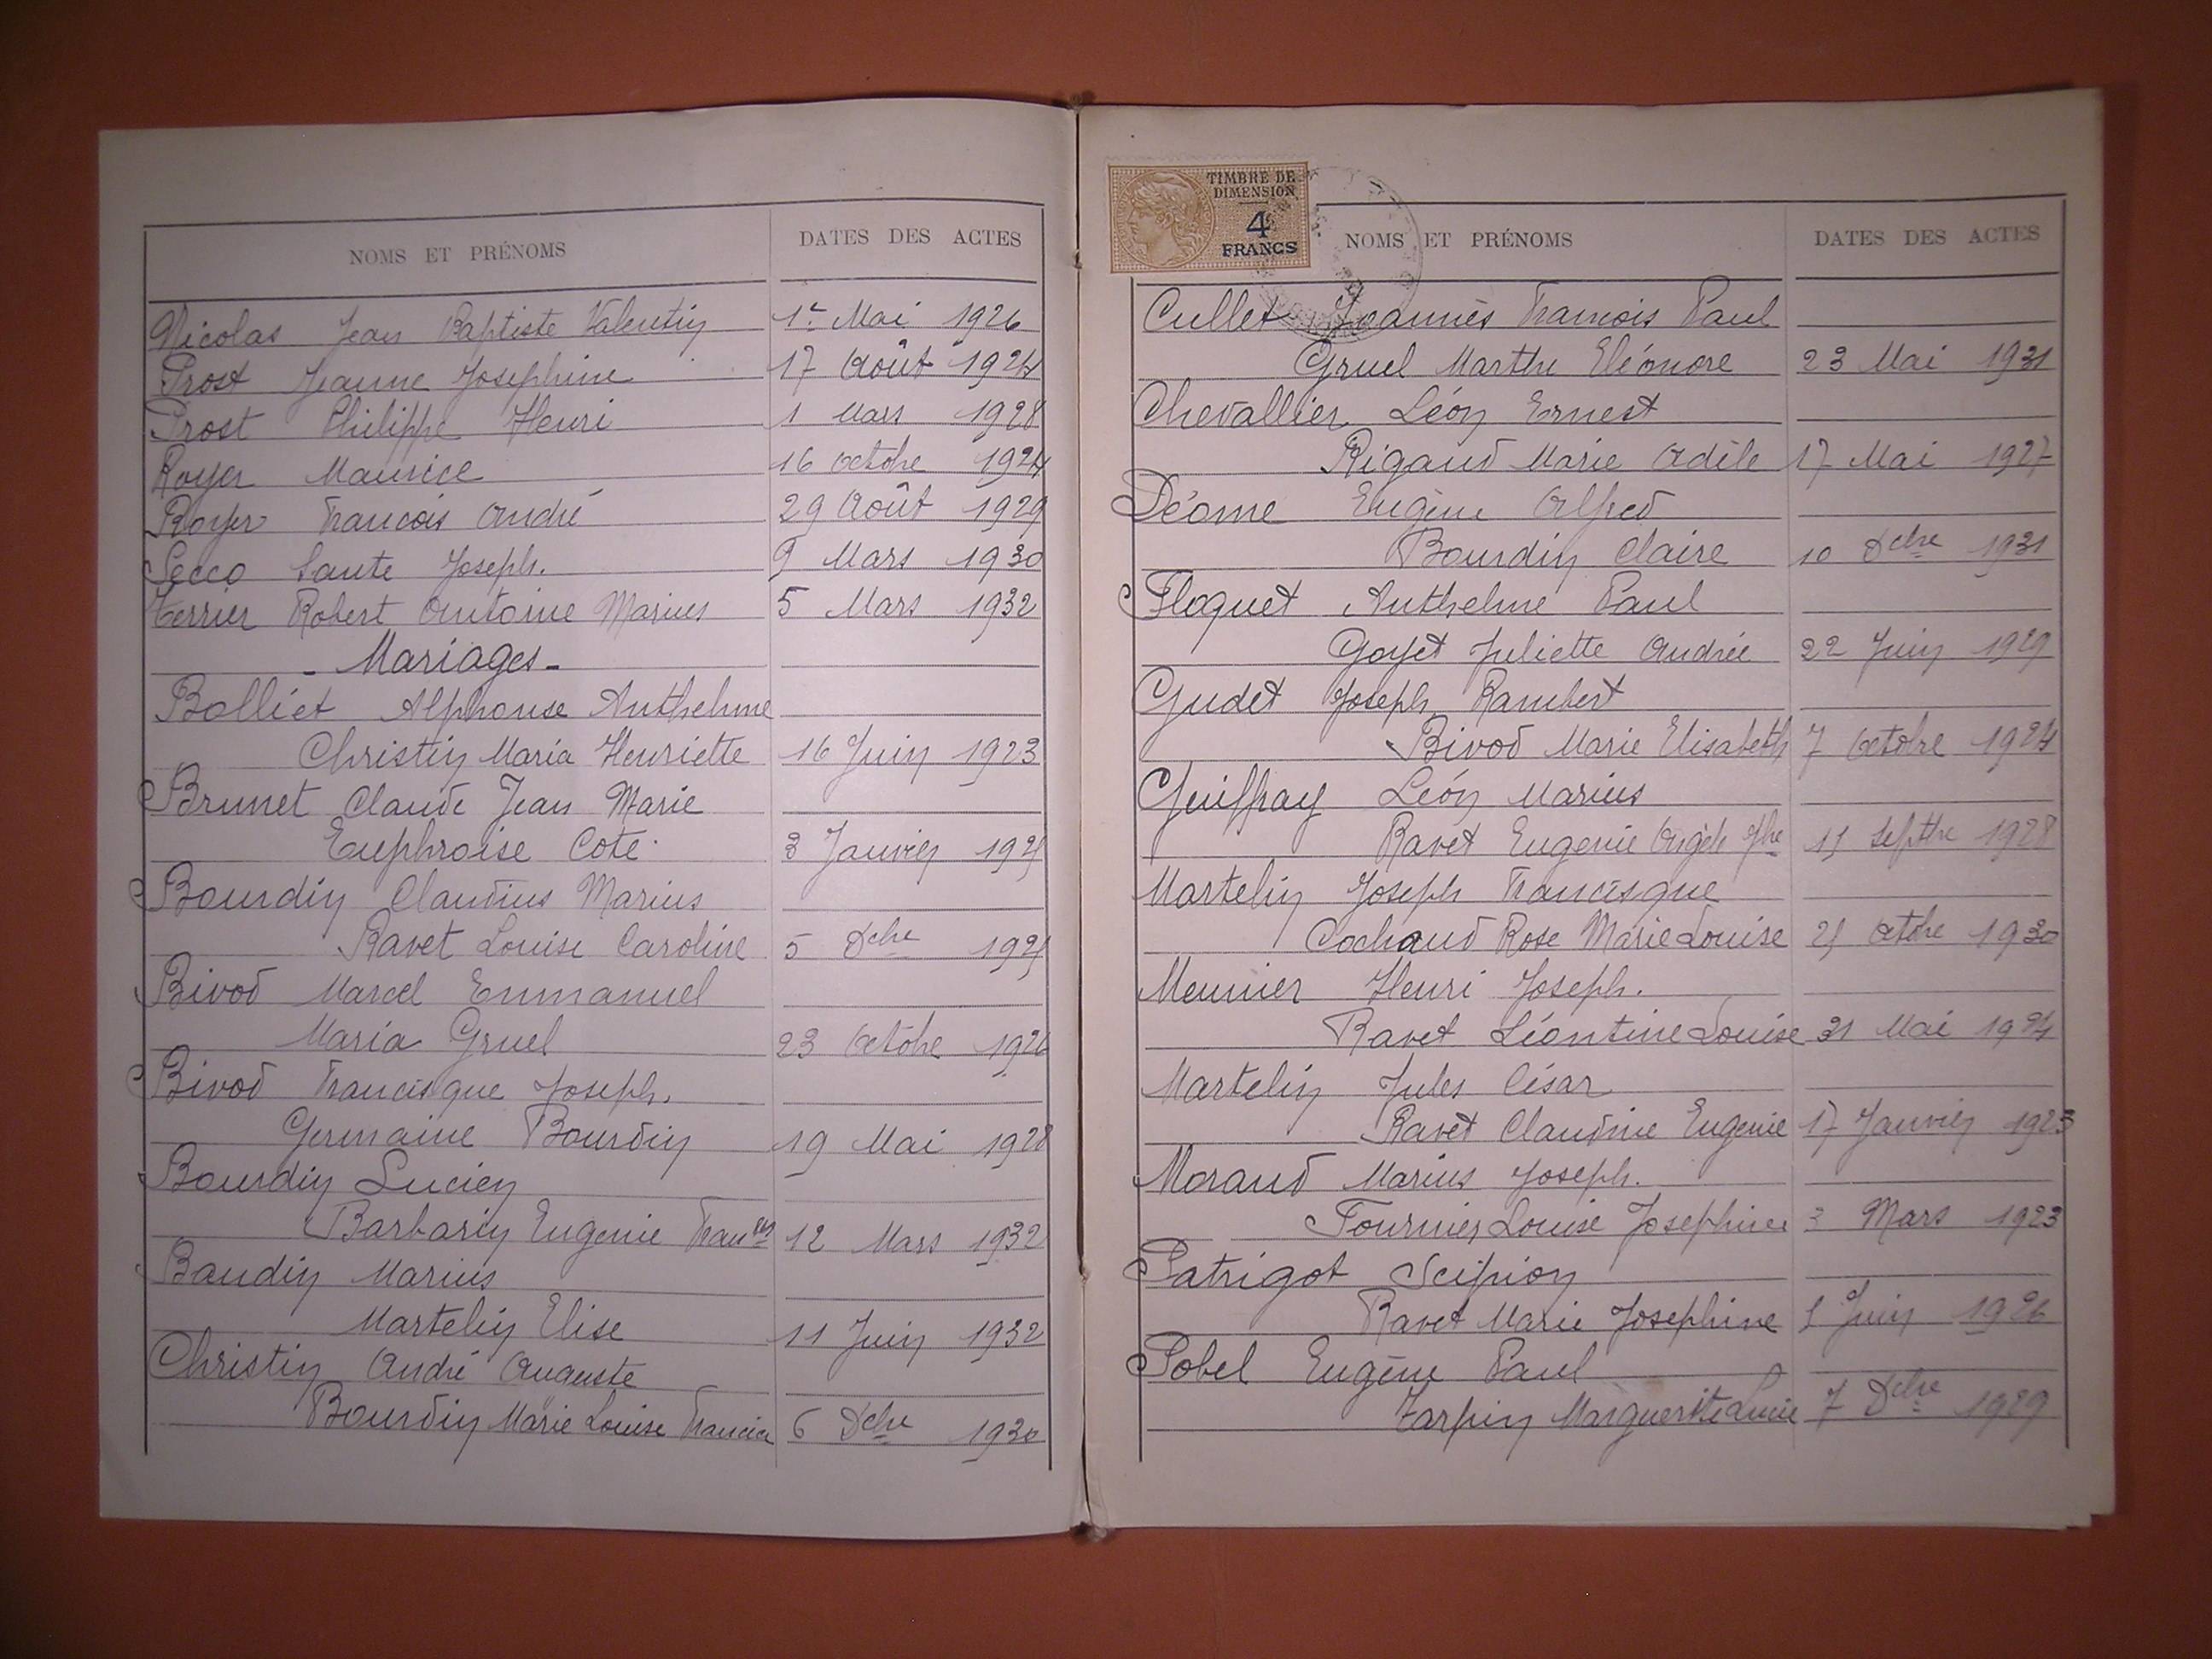 NOMS ET PRÉNOMS DATES DES ACTES
Nicolas Jean Baptiste Valentin 1er Mai 1926
Prost Jeanne Josephine 17 Août 1924
Prost Philippe Henri 1 Mars 1928
Royer Maurice 16 octobre 1924
Royer François André 29 Août 1929
Secco Sante Joseph. 9 Mars 1930
Terrier Robert Antoine Marius 5 Mars 1932
- Mariages -
Bolliet Alphonse Anthelme
Christin Maria Henriette 16 Juin 1923
Brunet Claude Jean Marie
Euphroise Cote 3 Janvier
Bourdin Claudius Marius
Ravet Louise Caroline 5 Dcbre
Bivod Marcel Emmanuel
Maria Gruel 23 Octobre 1926
Bivod Francisque Joseph.
Germaine Bourdin 19 Mai 1928
Bourdin Lucien
Barbarin Eugenie 12 Mars 1932
Baudin Marius
Martelin Elise 11 Juin 1932
Christin André Auguste
Bourdin Marie Louise Francia 6 Dcbre 1930
TIMBRE DE
DIMENSION
4
FRANCS
NOMS ET PRÉNOMS DATES DES ACTES
Cullet Joannès François Paul
Gruel Marthe Eléonore 23 Mai 1931
Chevallier Léon Ernest
Rigaud Marie Adèle 17 Mai 1927
Déome Eugène Alfred
Bourdin Claire 10 Dcbre 1931
Floquet Anthelme Paul
Goyet Juliette Andrée 22 Juin 1929
Gudet Joseph Rambert
Bivod Marie Elisabeth 7 Octobre 1924
Guiffray Léon Marius
Ravet Eugenie Angèle Jphe Septbre 1928
Martelin Joseph Francisque
Cochaud Rose Marie Louise octbre 1930
Meunier Henri Joseph.
Ravet Léontine Louise 31 Mai 1924
Martelin Jules César
Ravet Claudine Eugenie 17 Janvier 1923
Moraud Marius Joseph.
Fournier Louise Josephine 3 Mars 1923
Patrigot Scipion
Ravet Marie Josephine Juin 1926
Pobel Eugène Paul
Tarpin Marguerite Lucie 7 Dcbre 1929